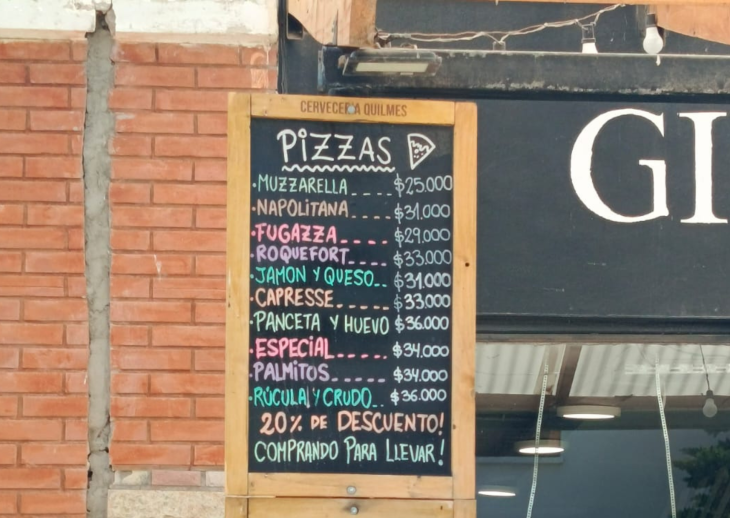 CERVECERÍA QUILMES
PIZZAS
·MUZZARELLA____ $25.000
·NAPOLITANA____ $31.000
·FUGAZZA_____ $29.000
·ROQUEFORT____ $33.000
·JAMON Y QUESO__ $31.000
·CAPRESSE______ $33.000
·PANCETA Y HUEVO $36.000
·ESPECIAL_____ $34.000
·PALMITOS_____ $34.000
·RÚCULA Y CRUDO__ $36.000
20% DE DESCUENTO!
COMPRANDO PARA LLEVAR!
GI